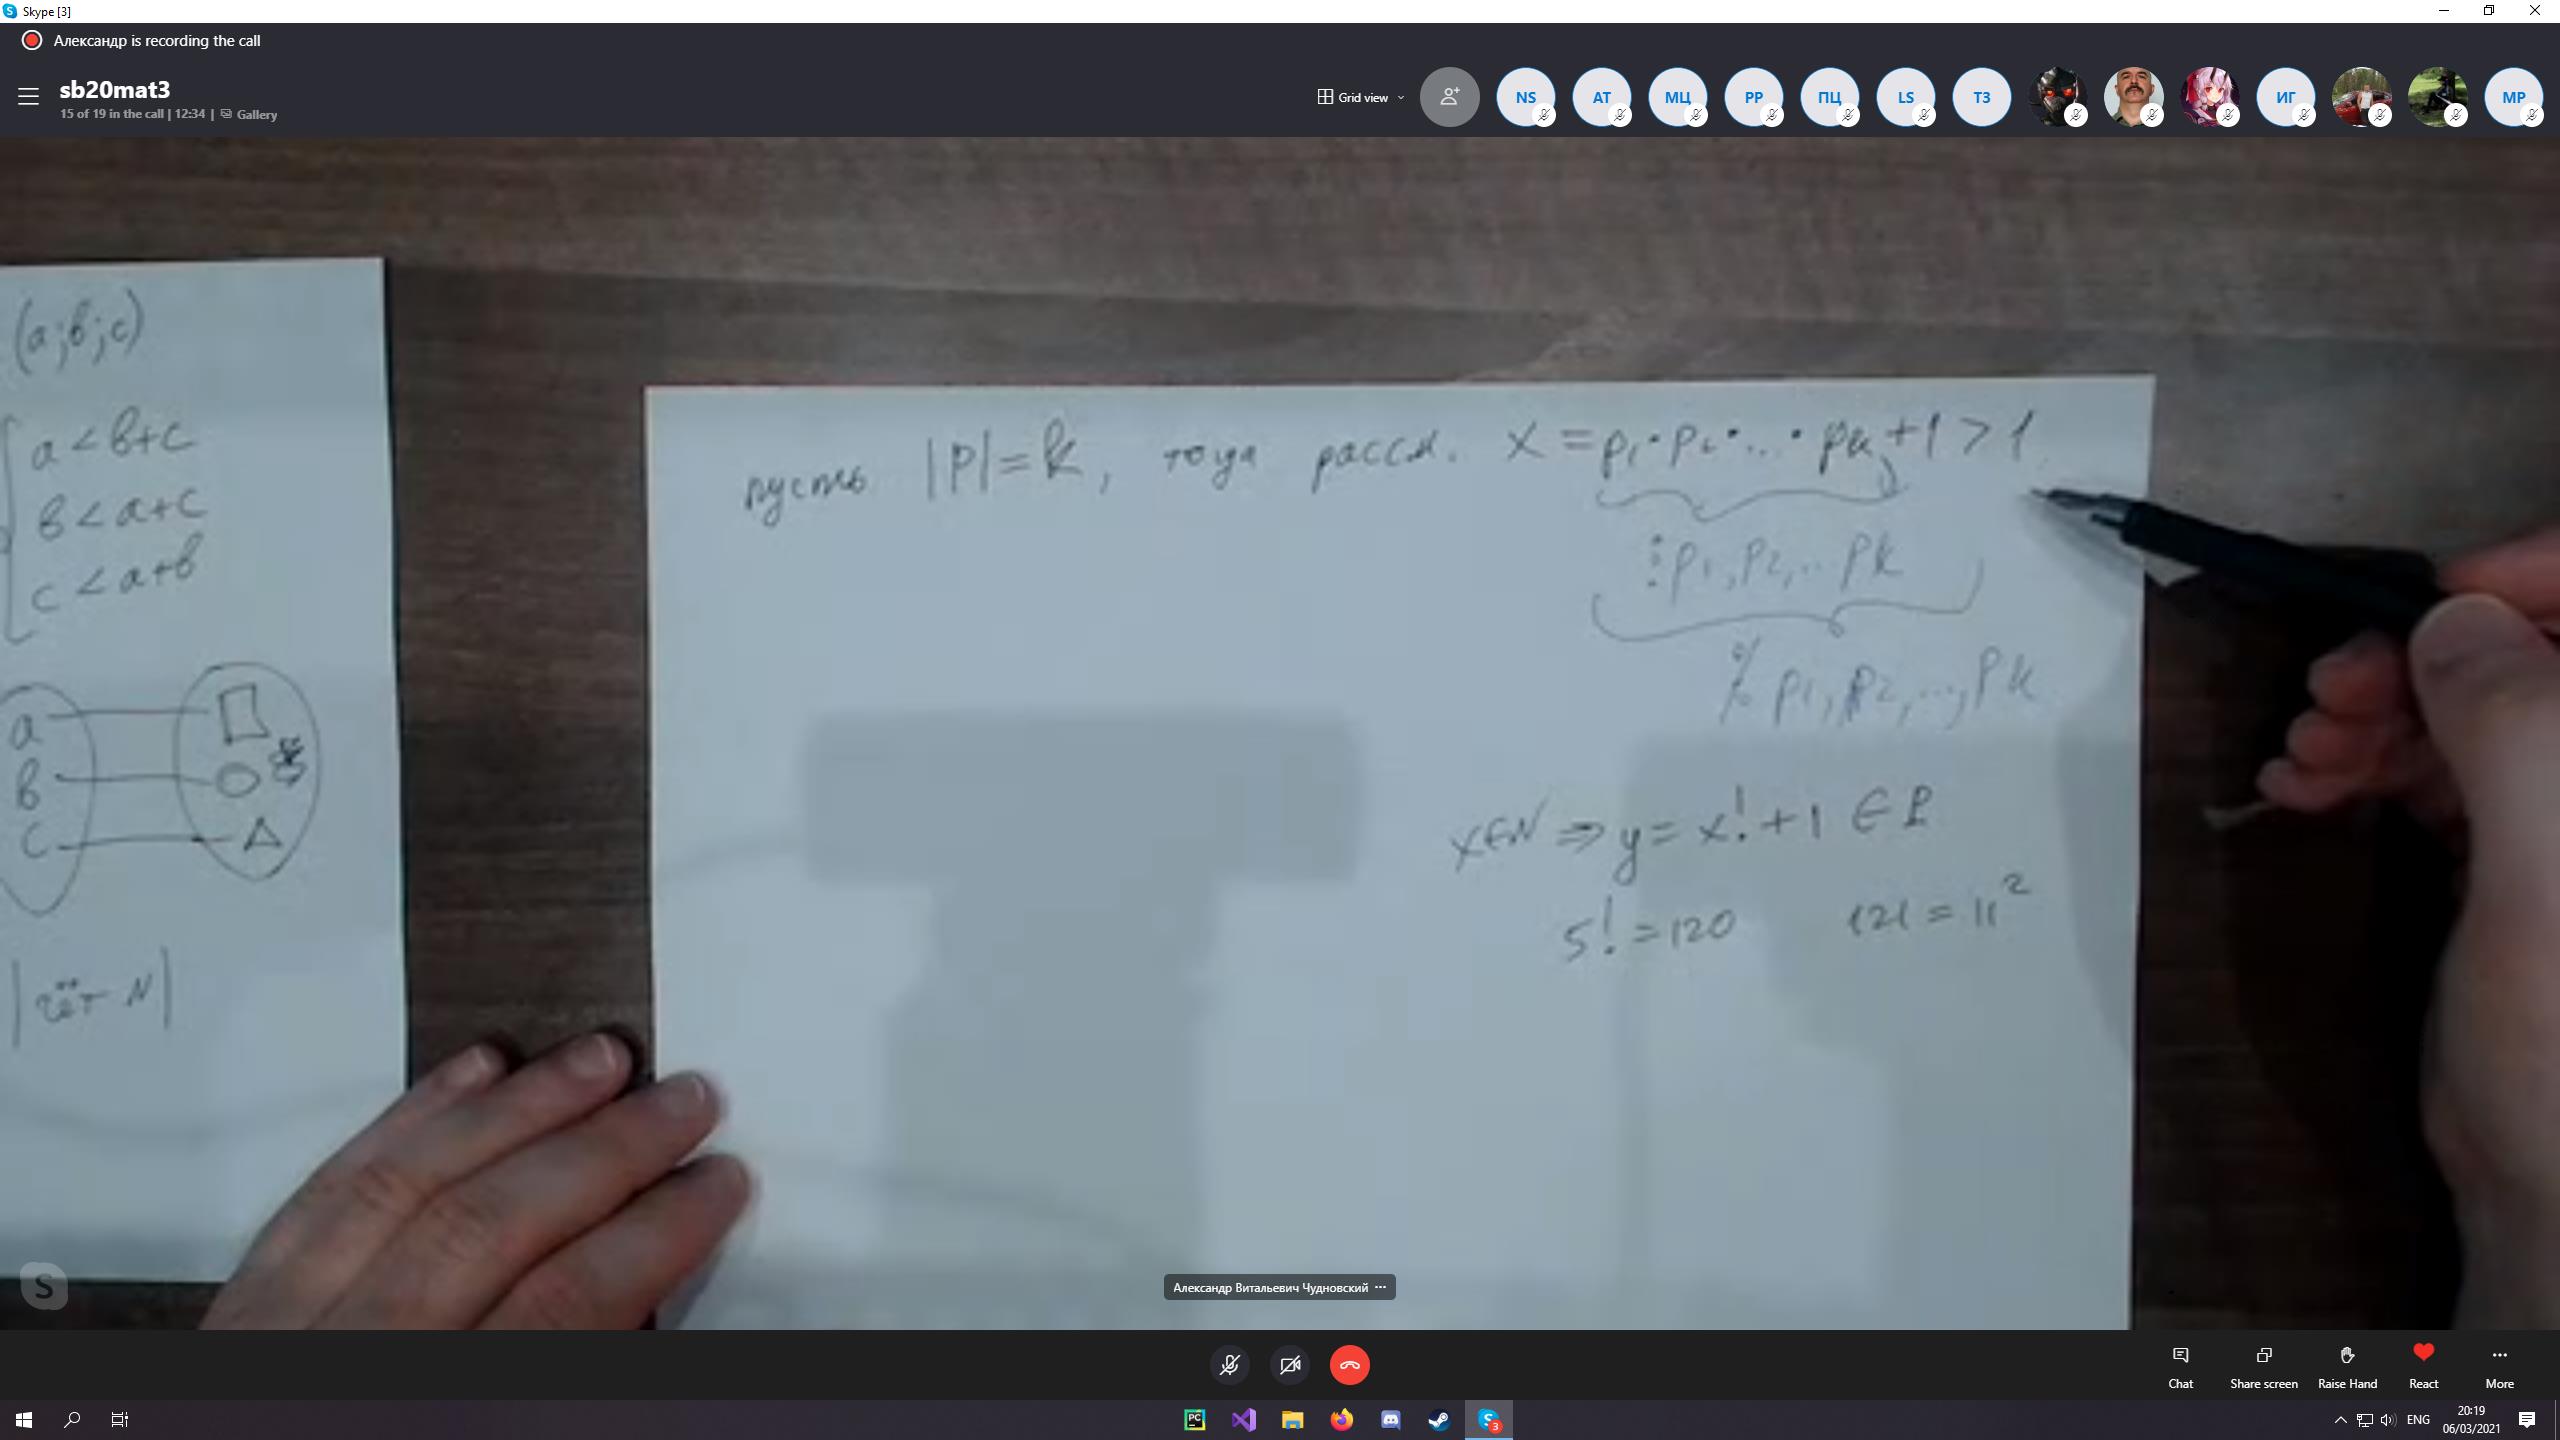 Skype [3]
Александр is recording the call
sb20mat3
15 of 19 in the call | 12:34 | Gallery
Grid view
NS
АТ
МЦ
PP
ПЦ
LS
ТЗ
ИГ
МР
(a;b;c)
a < b+c
b < a+c
c < a+b
a
b
c
|чёт N|
пусть |P|=k, тогда рассм. x = p₁·p₂·...·pₖ+1 > 1
⋮ p₁, p₂, .. pₖ
p₁, p₂, ..., pₖ
x∈N ⇒ y = x! + 1 ∈ P
5! = 120 121 = 11²
Александр Витальевич Чудновский
S
Chat
Share screen
Raise Hand
React
More
PC
S
3
ENG
20:19
06/03/2021